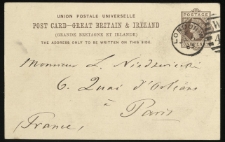 UNION POSTALE UNIVERSELLE
POST CARD—GREAT BRITAIN & IRELAND
(GRANDE BRETAGNE ET IRLANDE)
THE ADDRESS ONLY TO BE WRITTEN ON THIS SIDE.
POSTAGE
Monsieur L. Niedzwiecki
6. Quai d'Orléans
à Paris
(France)